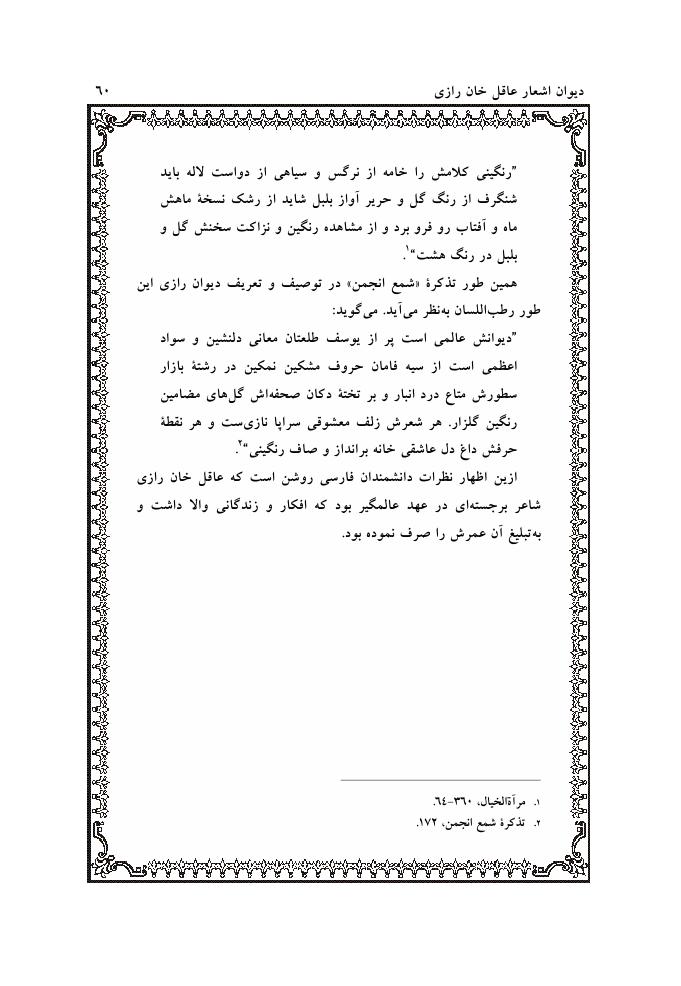 دیوان اشعار عاقل خان رازی ۶۰
”رنگینی کلامش را خامه از نرگس و سیاهی از دواست لاله باید
شنگرف از رنگ گل و حریر آواز بلبل شاید از رشک نسخۀ ماهش
ماه و آفتاب رو فرو برد و از مشاهده رنگین و نزاکت سخنش گل و
بلبل در رنگ هشت“۱.
همین طور تذکرۀ «شمع انجمن» در توصیف و تعریف دیوان رازی این
طور رطب‌اللسان به‌نظر می‌آید. می‌گوید:
”دیوانش عالمی است پر از یوسف طلعتان معانی دلنشین و سواد
اعظمی است از سیه فامان حروف مشکین نمکین در رشتۀ بازار
سطورش متاع درد انبار و بر تختۀ دکان صحفه‌اش گل‌های مضامین
رنگین گلزار. هر شعرش زلف معشوقی سراپا نازی‌ست و هر نقطۀ
حرفش داغ دل عاشقی خانه برانداز و صاف رنگینی“۲.
ازین اظهار نظرات دانشمندان فارسی روشن است که عاقل خان رازی
شاعر برجسته‌ای در عهد عالمگیر بود که افکار و زندگانی والا داشت و
به‌تبلیغ آن عمرش را صرف نموده بود.
۱. مرآةالخیال، ۳۶۰-۶۴.
۲. تذکرۀ شمع انجمن، ۱۷۲.